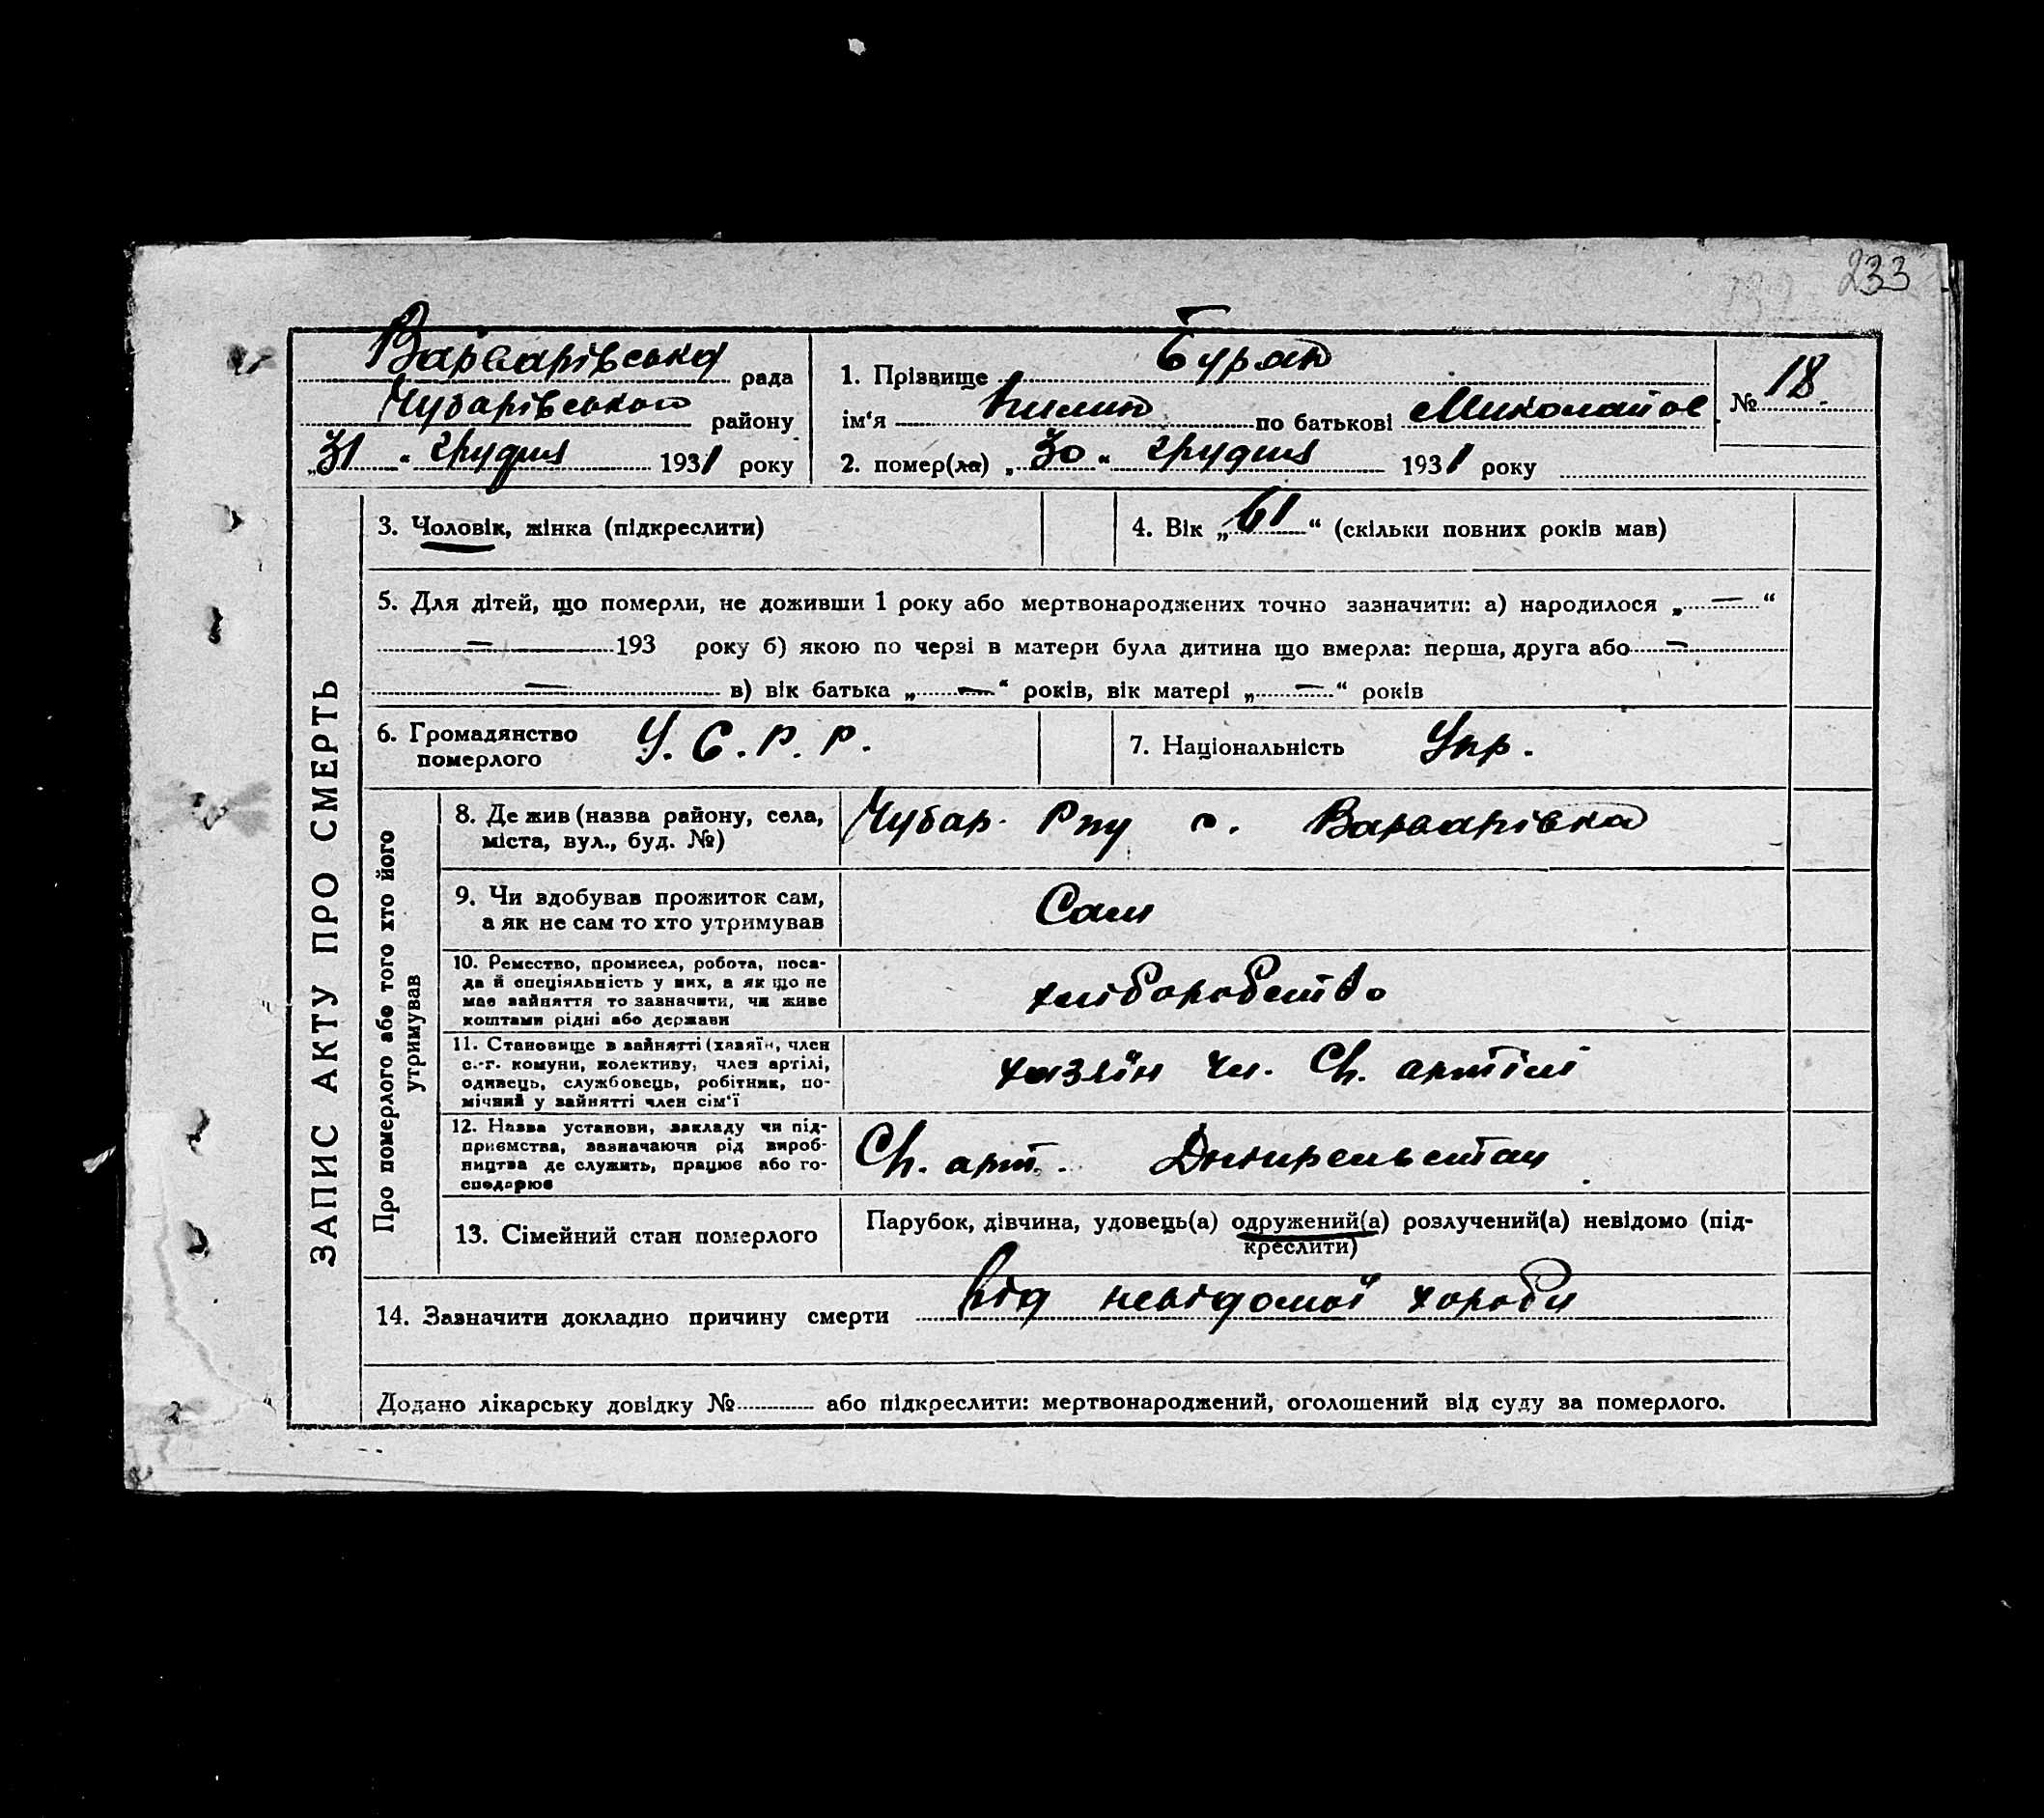 233
Варварівська рада
Чубарівського району
„31“ грудня 1931 року
1. Прізвище Буряк
ім‘я Пилип по батькові Миколайов
№ 18.
2. помер(ла) „30“ грудня 1931 року
ЗАПИС АКТУ ПРО СМЕРТЬ
3. Чоловік, жінка (підкреслити)
4. Вік „61“ (скільки повних років мав)
5. Для дітей, що померли, не доживши 1 року або мертвонароджених точно зазначити: а) народилося „—“
— 193 року б) якою по черзі в матери була дитина що вмерла: перша, друга або —
— в) вік батька „—“ років, вік матері „—“ років
6. Громадянство
померлого
У.С.Р.Р.
7. Національність Укр.
Про померлого або того хто його
утримував
8. Де жив (назва району, села,
міста, вул., буд. №)
Чубар. Рну с. Варварівка
9. Чи вдобував прожиток сам,
а як не сам то хто утримував
Сам
10. Ремество, промисел, робота, поса-
да й спеціяльність у них, а як що не
має зайняття то зазначити, чи живе
коштами рідні або держави
хліборобство
11. Становище в зайнятті (хазяїн, член
с.-г. комуни, колективу, член артілі,
одинець, службовець, робітник, по-
мічний у зайнятті член сім‘ї
хазяїн чл. СГ. артілі
12. Назва установи, закладу чи під-
приємства, зазначаючи рід вироб-
ництва де служить, працює або го-
сподарює
СГ. арт. Дніпрельстан
13. Сімейний стан померлого
Парубок, дівчина, удовець(а) одружений(а) розлучений(а) невідомо (під-
креслити)
14. Зазначити докладно причину смерти від невідомої хороби
Додано лікарську довідку № або підкреслити: мертвонароджений, оголошений від суду за померлого.